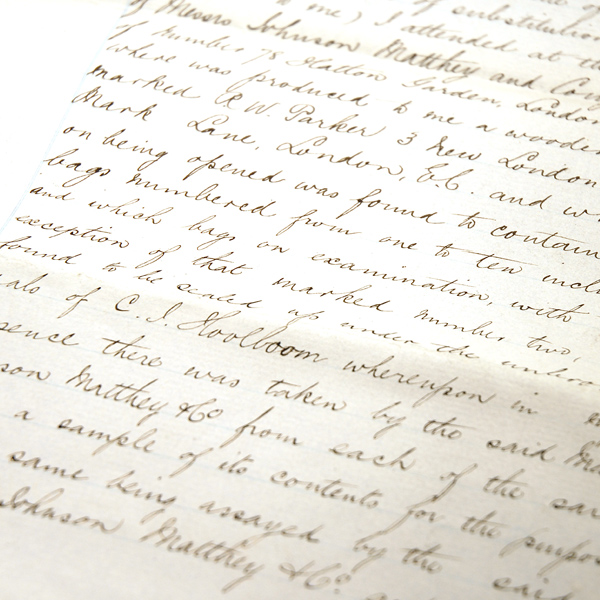 of substitution
me) I attended at the
of Messrs Johnson Matthey and Co
of number 78 Hatton Garden, London
where was produced to me a wooden
marked R W. Parker 3 New London
Mark Lane, London, E.C. and
on being opened was found to contain
bags numbered from one to ten
and which bags on examination, with
exception of that marked number two,
found to be sealed up under the
of C. J. Hoolboom whereupon in
there was taken by the said
Matthey & Co from each of the
a sample of its contents for the
same being assayed by the said
Johnson Matthey & Co